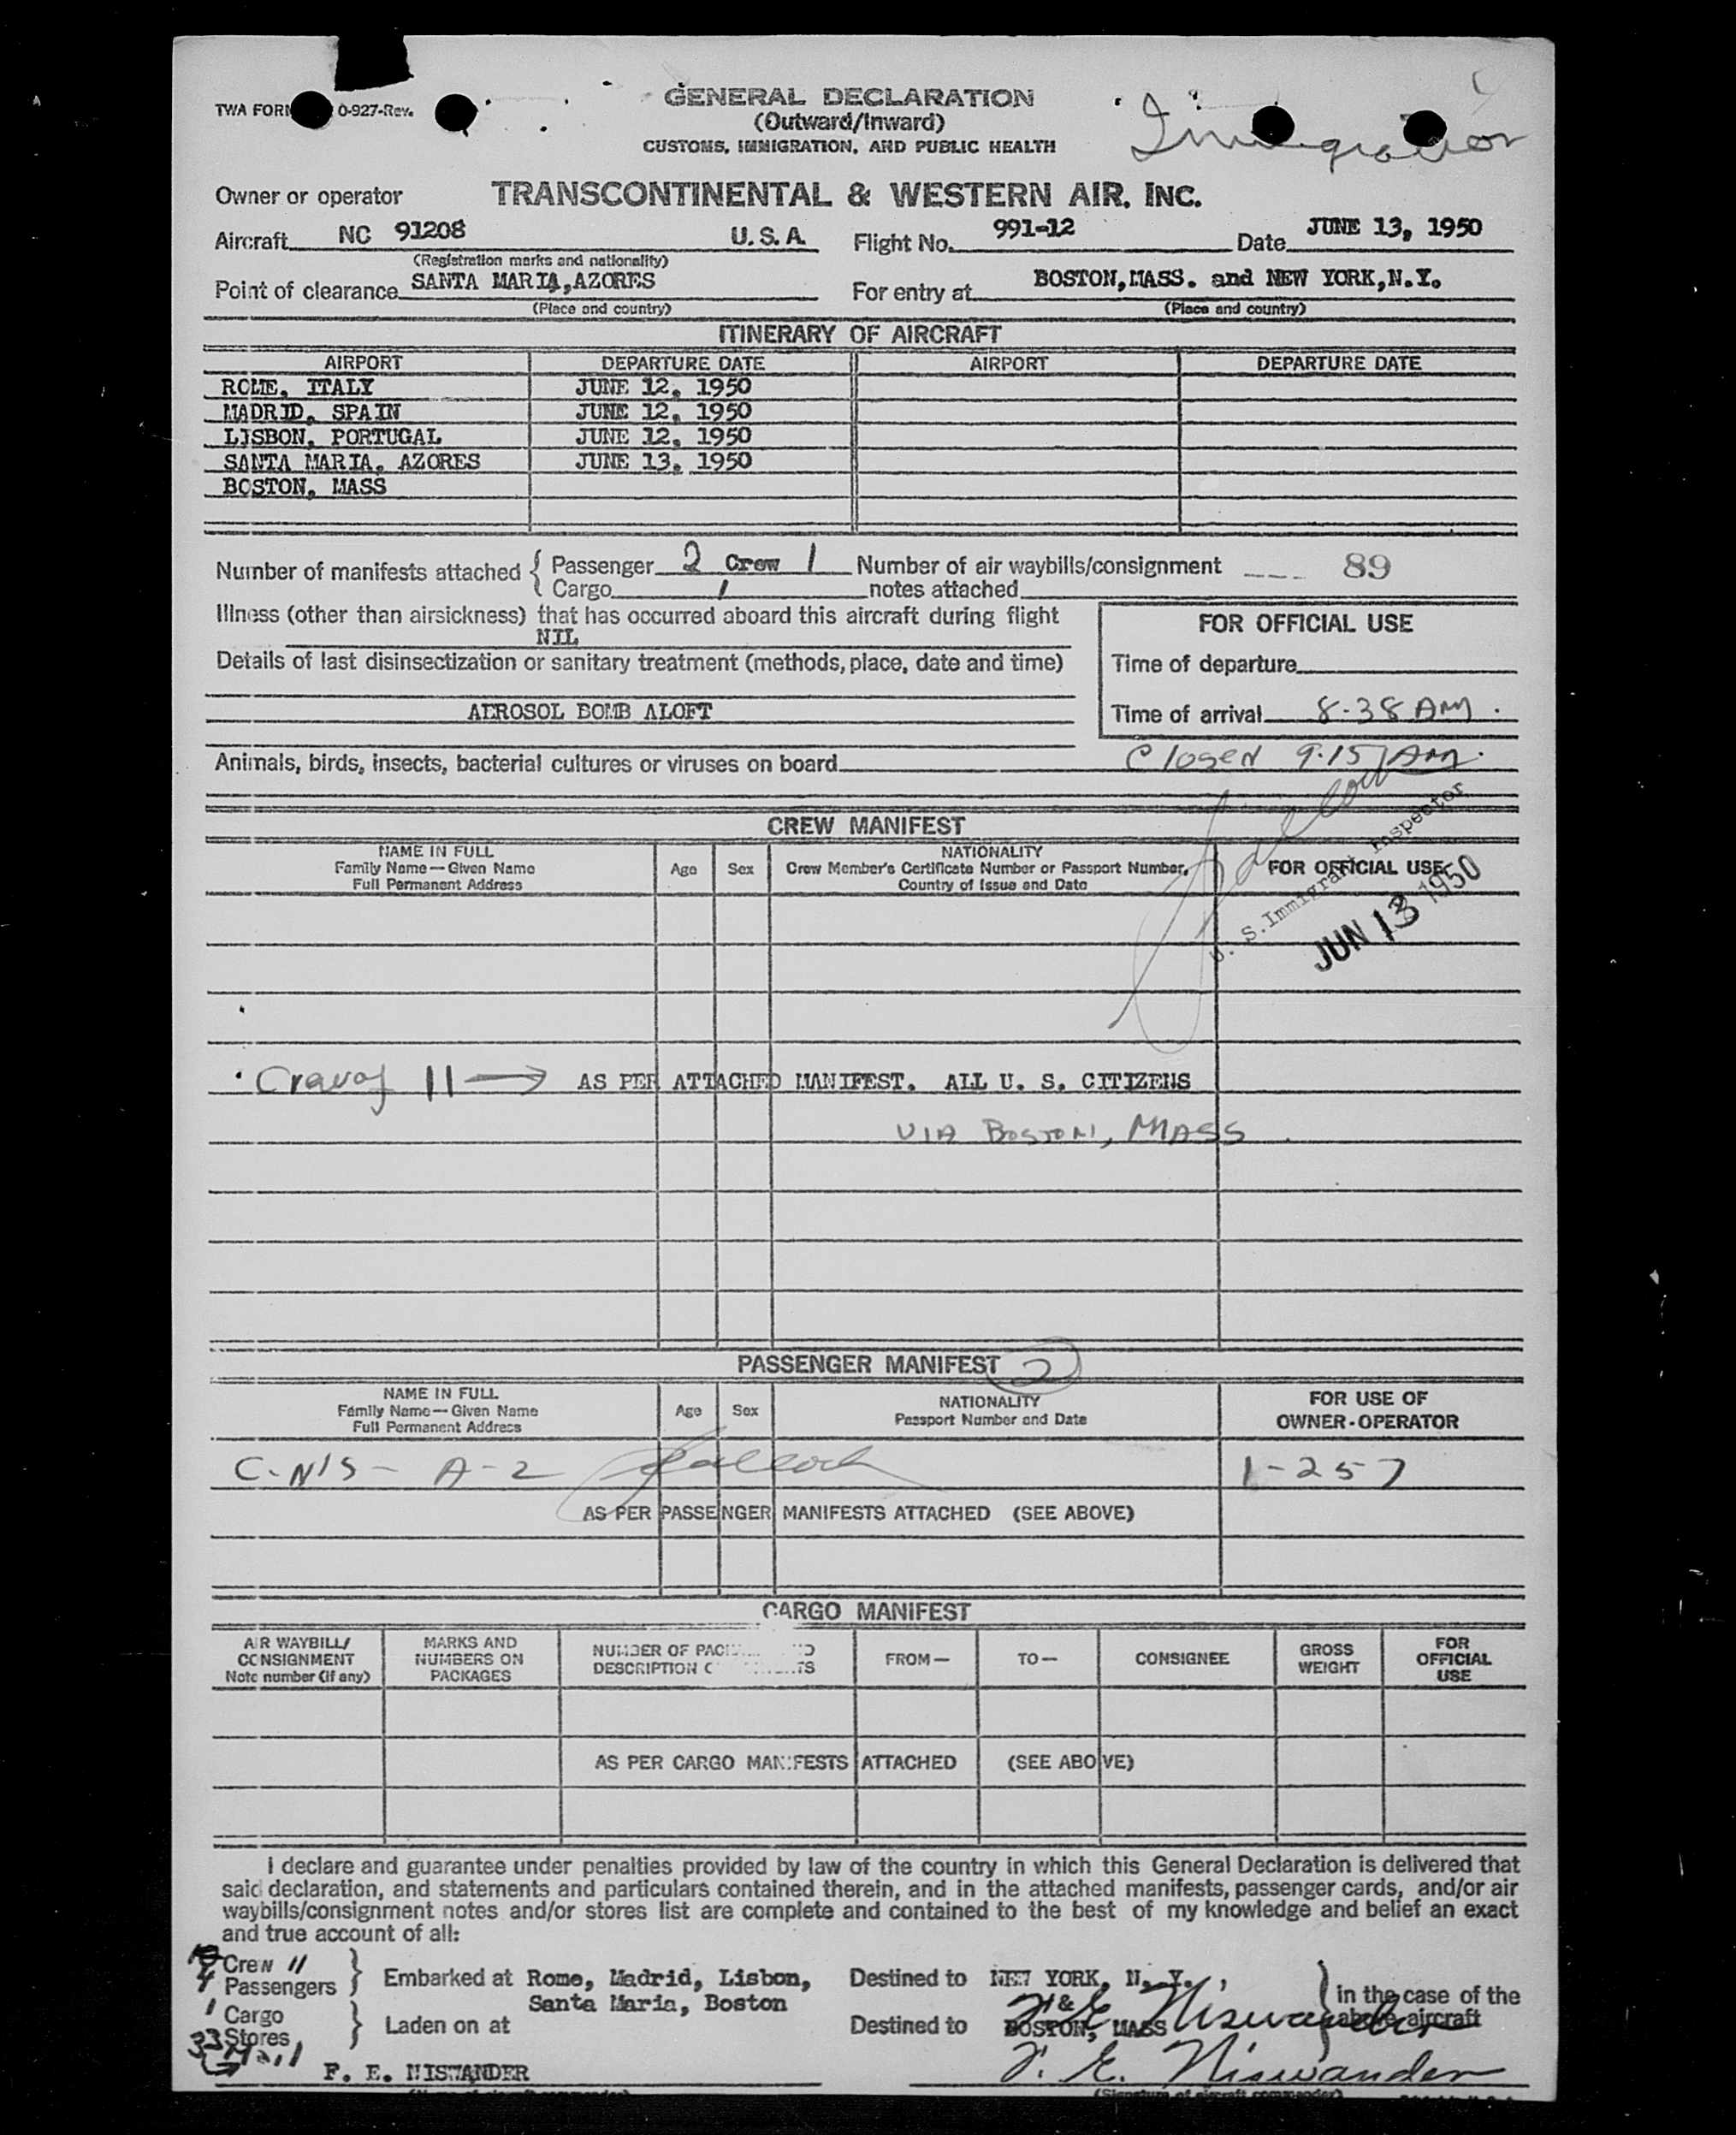 TWA FORM 0-927-Rev.
GENERAL DECLARATION
(Outward/Inward)
CUSTOMS, IMMIGRATION, AND PUBLIC HEALTH
Immigration
Owner or operator TRANSCONTINENTAL & WESTERN AIR, INC.
Aircraft NC 91208 U.S.A. Flight No. 991-12 Date JUNE 13, 1950
(Registration marks and nationality)
Point of clearance SANTA MARIA,AZORES For entry at BOSTON,MASS. and NEW YORK,N.Y.
(Place and country) (Place and country)
ITINERARY OF AIRCRAFT
AIRPORT DEPARTURE DATE AIRPORT DEPARTURE DATE
ROME, ITALY JUNE 12, 1950
MADRID, SPAIN JUNE 12, 1950
LISBON, PORTUGAL JUNE 12, 1950
SANTA MARIA, AZORES JUNE 13, 1950
BOSTON, MASS
Number of manifests attached { Passenger 2 Crew 1 Number of air waybills/consignment 89
Cargo 1 notes attached
Illness (other than airsickness) that has occurred aboard this aircraft during flight
NIL
Details of last disinsectization or sanitary treatment (methods, place, date and time)
AEROSOL BOMB ALOFT
FOR OFFICIAL USE
Time of departure
Time of arrival 8-38 AM.
Closed 9.15 AM.
Animals, birds, insects, bacterial cultures or viruses on board
CREW MANIFEST
NAME IN FULL
Family Name—Given Name
Full Permanent Address
Age Sex
NATIONALITY
Crew Member's Certificate Number or Passport Number,
Country of Issue and Date
FOR OFFICIAL USE
U. S. Immigrant Inspector
JUN 13 1950
Crew of 11 → AS PER ATTACHED MANIFEST. ALL U. S. CITIZENS
VIA BOSTON, MASS
PASSENGER MANIFEST 2
NAME IN FULL
Family Name—Given Name
Full Permanent Address
Age Sex
NATIONALITY
Passport Number and Date
FOR USE OF
OWNER-OPERATOR
C-N'S - A-2 1-257
AS PER PASSENGER MANIFESTS ATTACHED (SEE ABOVE)
CARGO MANIFEST
AIR WAYBILL/
CONSIGNMENT
Note number (if any)
MARKS AND
NUMBERS ON
PACKAGES
NUMBER OF
DESCRIPTION
FROM—
TO—
CONSIGNEE
GROSS
WEIGHT
FOR
OFFICIAL
USE
AS PER CARGO MANIFESTS ATTACHED (SEE ABOVE)
I declare and guarantee under penalties provided by law of the country in which this General Declaration is delivered that
said declaration, and statements and particulars contained therein, and in the attached manifests, passenger cards, and/or air
waybills/consignment notes and/or stores list are complete and contained to the best of my knowledge and belief an exact
and true account of all:
Crew 11
Passengers } Embarked at Rome, Madrid, Lisbon, Destined to NEW YORK, N. Y.,
Santa Maria, Boston &
1 Cargo
Stores } Laden on at Destined to BOSTON, MASS
} in the case of the
above aircraft
F. E. Niswander
33 Mail
F. E. NISWANDER F. E. Niswander
(Signature of aircraft commander)